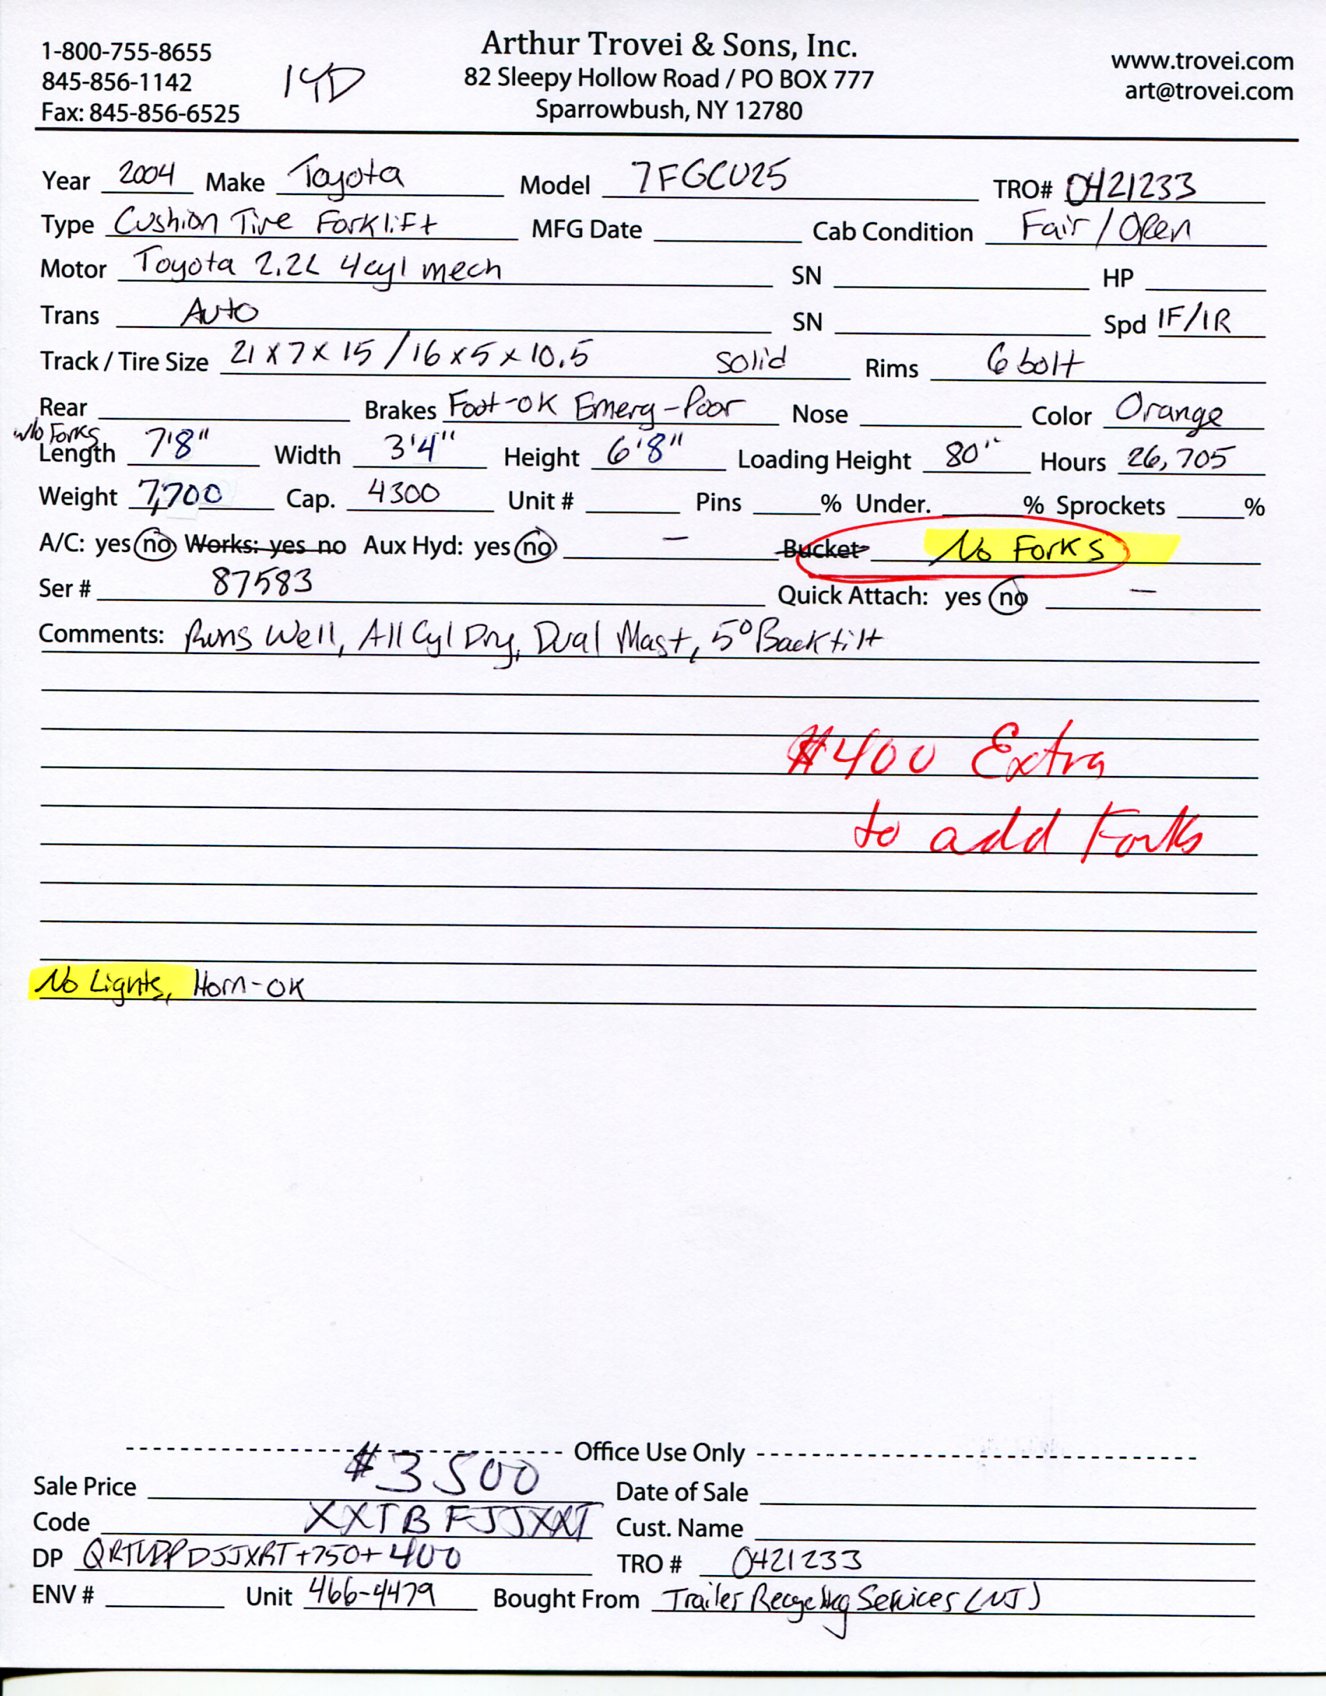 1-800-755-8655
845-856-1142
Fax: 845-856-6525
14D
Arthur Trovei & Sons, Inc.
82 Sleepy Hollow Road / PO BOX 777
Sparrowbush, NY 12780
www.trovei.com
art@trovei.com
Year 2004 Make Toyota Model 7FGCU25 TRO# 0421233
Type Cushion Tire Forklift MFG Date Cab Condition Fair / Open
Motor Toyota 2.2L 4cyl mech SN HP
Trans Auto SN Spd 1F/1R
Track / Tire Size 21 x 7 x 15 / 16 x 5 x 10.5 solid Rims 6 bolt
Rear Brakes Foot-OK Emerg-Poor Nose Color Orange
w/o Forks
Length 7'8" Width 3'4" Height 6'8" Loading Height 80" Hours 26,705
Weight 7,700 Cap. 4300 Unit # Pins % Under. % Sprockets %
A/C: yes no Works: yes no Aux Hyd: yes no — Bucket No Forks
Ser # 87583 Quick Attach: yes no —
Comments: Runs Well, All Cyl Dry, Dual Mast, 5° Backtilt
$400 Extra
to add Forks
No Lights, Horn-OK
Office Use Only
Sale Price $3500 Date of Sale
Code XXTBFJJXXT Cust. Name
DP +750+400 TRO # 0421233
ENV # Unit 466-4479 Bought From Trailer Recycling Services (NJ)